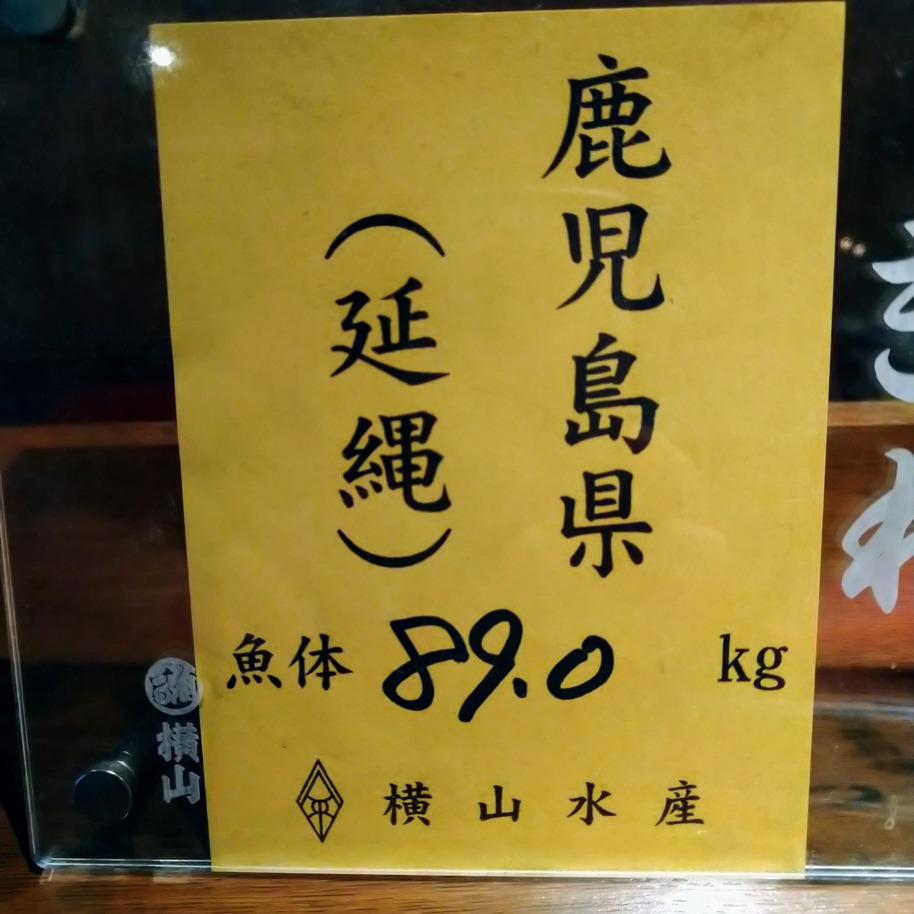 鹿児島県
（延縄）
魚体 89.0 kg
横山水産
横山